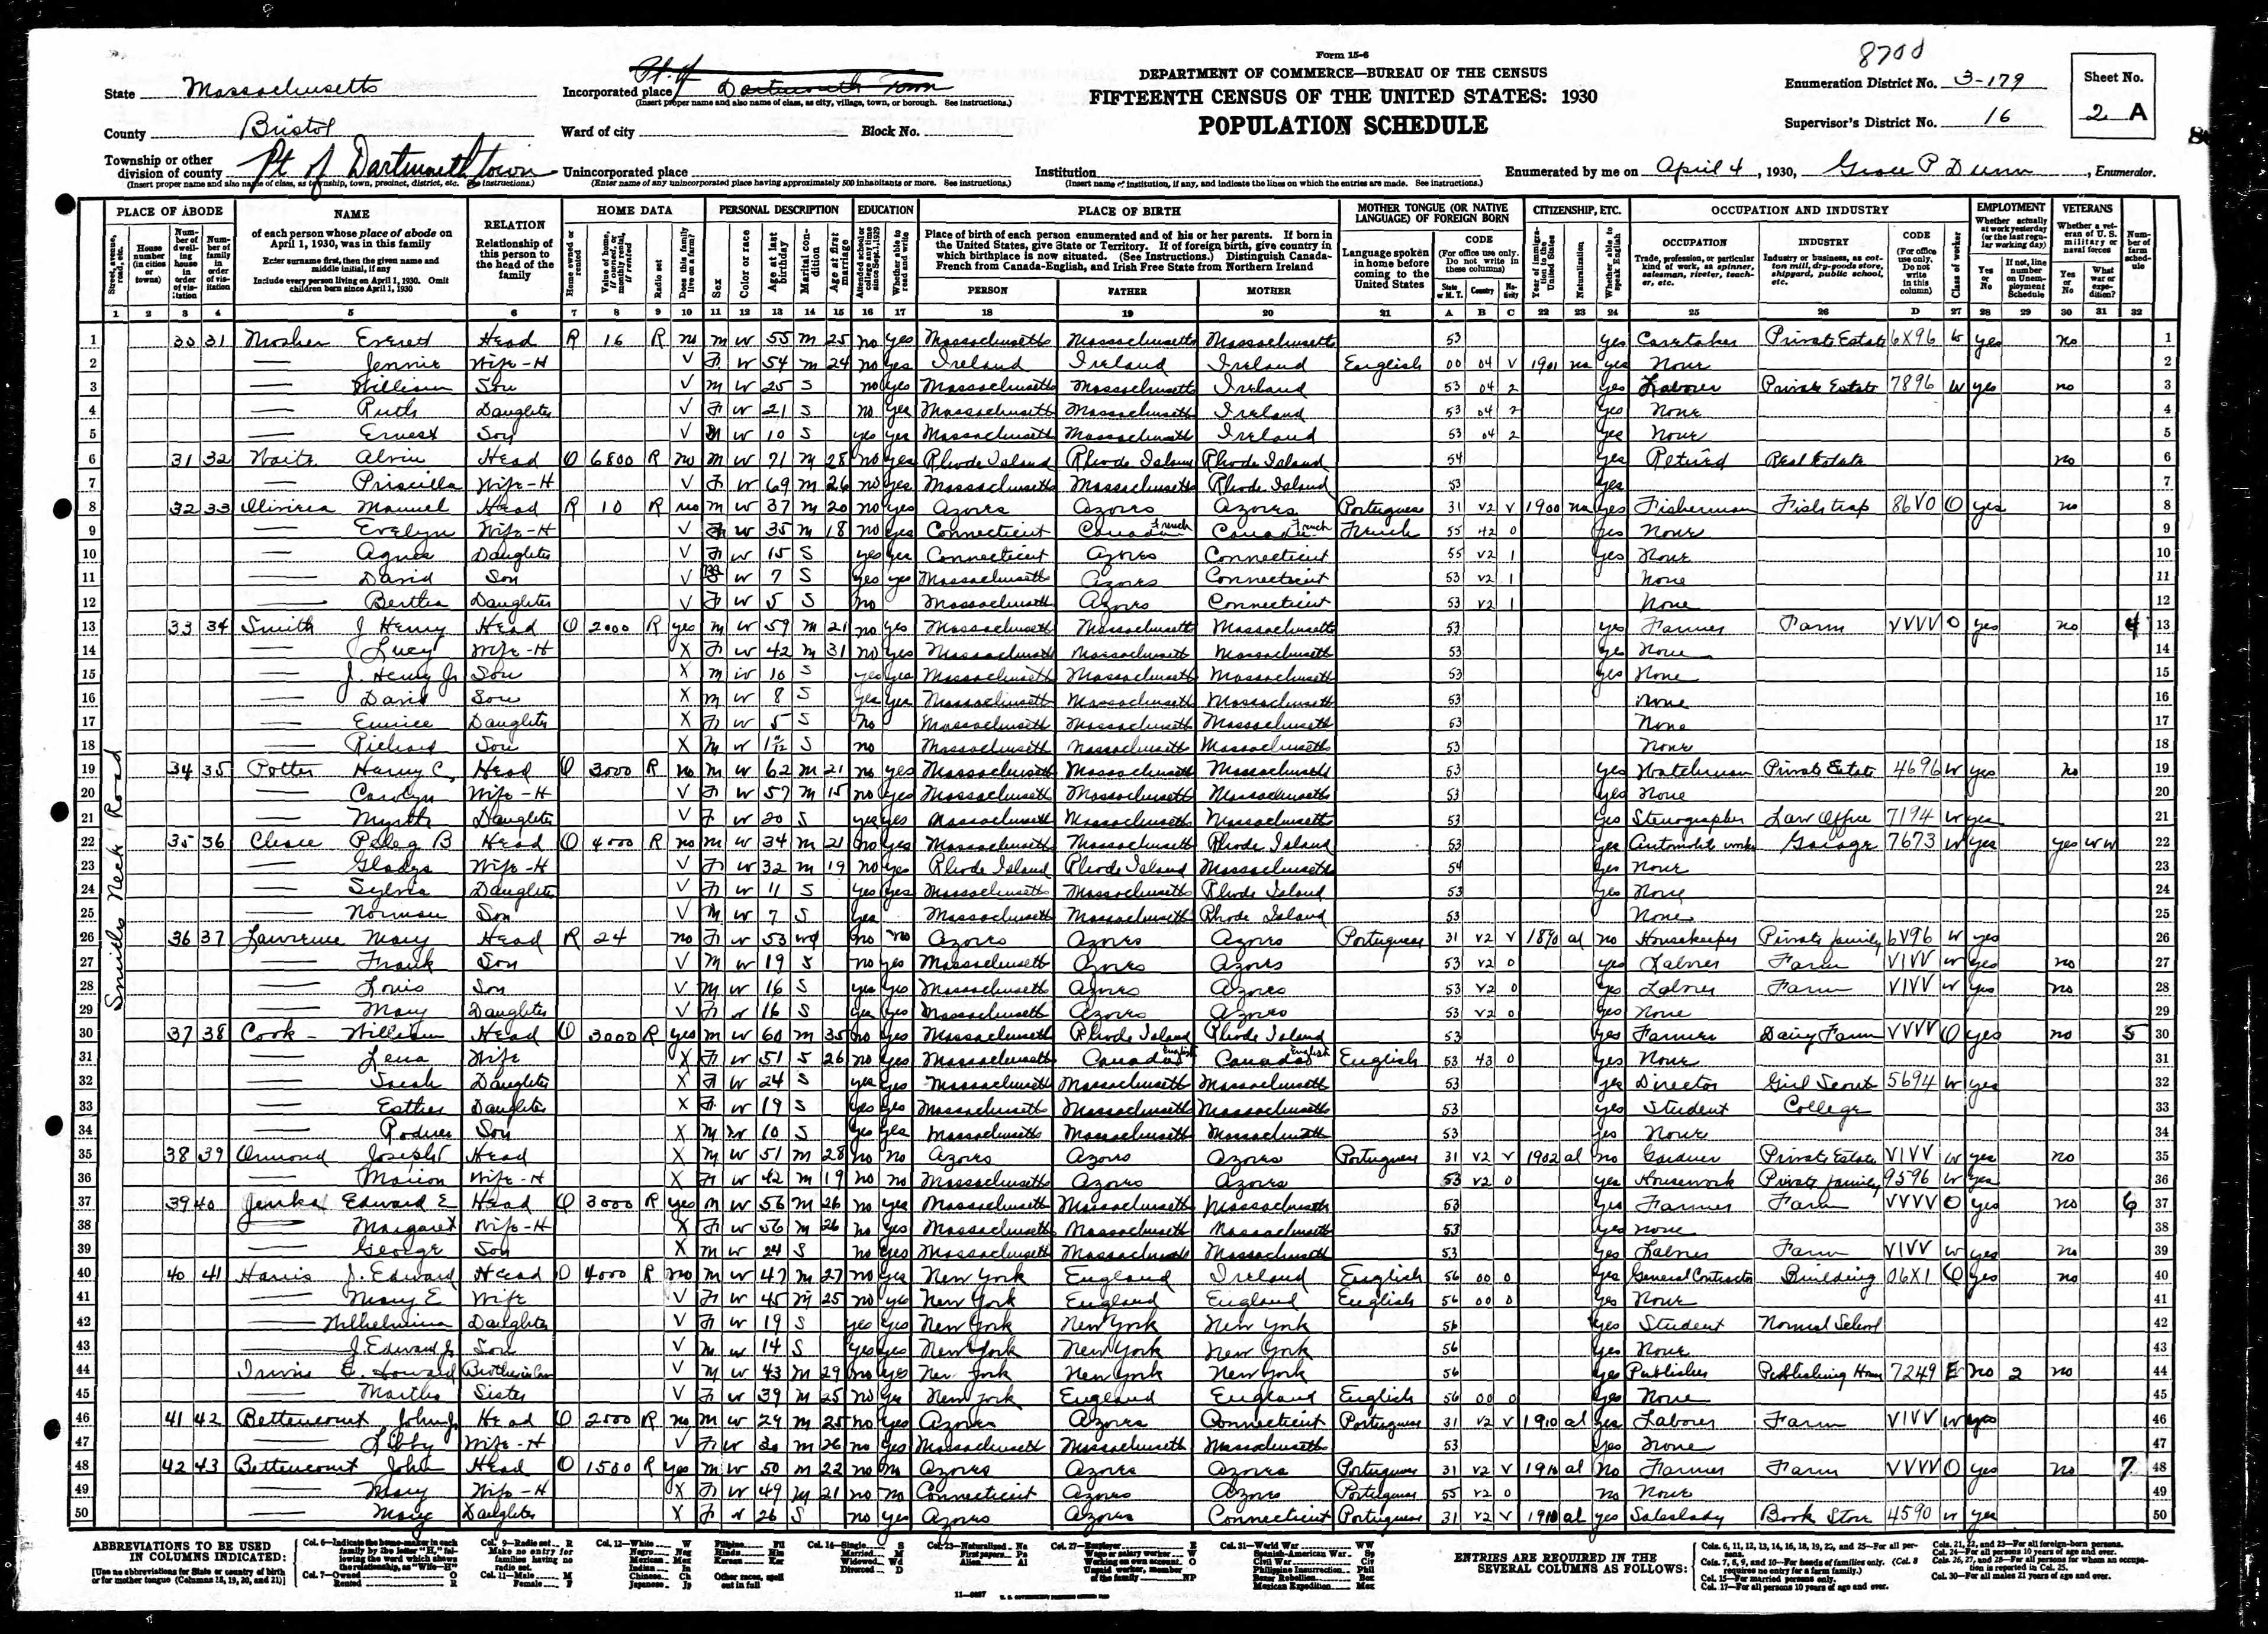 Form 15-6
8700
DEPARTMENT OF COMMERCE—BUREAU OF THE CENSUS
FIFTEENTH CENSUS OF THE UNITED STATES: 1930
POPULATION SCHEDULE
State Massachusetts
County Bristol
Township or other division of county Pt of Dartmouth town
(Insert proper name and also name of class, as township, town, precinct, district, etc. See instructions.)
Incorporated place Pt. of Dartmouth Town
(Insert proper name and also name of class, as city, village, town, or borough. See instructions.)
Ward of city Block No.
Unincorporated place
(Enter name of any unincorporated place having approximately 500 inhabitants or more. See instructions.)
Institution
(Insert name of institution, if any, and indicate the lines on which the entries are made. See instructions.)
Enumeration District No. 3-179
Supervisor's District No. 16
Sheet No. 2 A
Enumerated by me on April 4, 1930, Grace P Dunn, Enumerator.
PLACE OF ABODE
NAME of each person whose place of abode on April 1, 1930, was in this family
Enter surname first, then the given name and middle initial, if any
Include every person living on April 1, 1930. Omit children born since April 1, 1930
RELATION Relationship of this person to the head of the family
HOME DATA
PERSONAL DESCRIPTION
EDUCATION
PLACE OF BIRTH
Place of birth of each person enumerated and of his or her parents. If born in the United States, give State or Territory. If of foreign birth, give country in which birthplace is now situated. (See Instructions.) Distinguish Canada-French from Canada-English, and Irish Free State from Northern Ireland
PERSON FATHER MOTHER
MOTHER TONGUE (OR NATIVE LANGUAGE) OF FOREIGN BORN
Language spoken in home before coming to the United States
CITIZENSHIP, ETC.
OCCUPATION AND INDUSTRY
EMPLOYMENT
VETERANS
Smiths Neck Road
1 30 31 Mosher Everett Head R 16 R no M W 55 M 25 no yes Massachusetts Massachusetts Massachusetts 53 yes Caretaker Private Estate 6X96 W yes no 1
2 Jennie Wife-H V F W 54 M 24 no yes Ireland Ireland Ireland English 00 04 V 1901 na yes None 2
3 William Son V M W 25 S no yes Massachusetts Massachusetts Ireland 53 04 2 yes Laborer Private Estate 7896 W yes no 3
4 Ruth Daughter V F W 21 S no yes Massachusetts Massachusetts Ireland 53 04 2 yes None 4
5 Ernest Son V M W 10 S yes yes Massachusetts Massachusetts Ireland 53 04 2 yes None 5
6 31 32 Waite Alvin Head O 6800 R no M W 71 M 28 no yes Rhode Island Rhode Island Rhode Island 54 yes Retired Real Estate no 6
7 Priscilla Wife-H V F W 69 M 26 no yes Massachusetts Massachusetts Rhode Island 53 yes 7
8 32 33 Oliviera Manuel Head R 10 R no M W 37 M 20 no yes Azores Azores Azores Portuguese 31 V2 V 1900 na yes Fisherman Fish trap 86V0 O yes no 8
9 Evelyn Wife-H V F W 35 M 18 no yes Connecticut Canada French Canada French French 55 42 0 yes None 9
10 Agnes Daughter V F W 15 S yes yes Connecticut Azores Connecticut 55 V2 1 yes None 10
11 David Son V W 7 S yes yes Massachusetts Azores Connecticut 53 V2 1 None 11
12 Bertha Daughter V F W 5 S no Massachusetts Azores Connecticut 53 V2 1 None 12
13 33 34 Smith J Henry Head O 2000 R yes M W 59 M 21 no yes Massachusetts Massachusetts Massachusetts 53 yes Farmer Farm VVVV O yes no 4 13
14 Lucy Wife-H X F W 42 M 31 no yes Massachusetts Massachusetts Massachusetts 53 yes None 14
15 J. Henry Jr Son X M W 10 S yes yes Massachusetts Massachusetts Massachusetts 53 yes None 15
16 David Son X M W 8 S yes yes Massachusetts Massachusetts Massachusetts 53 None 16
17 Eunice Daughter X F W 5 S no Massachusetts Massachusetts Massachusetts 53 None 17
18 Richard Son X M W S no Massachusetts Massachusetts Massachusetts 53 None 18
19 34 35 Potter Harry C. Head O 3000 R no M W 62 M 21 no yes Massachusetts Massachusetts Massachusetts 53 yes Watchman Private Estate 4696 W yes no 19
20 Carolyn Wife-H V F W 57 M 15 no yes Massachusetts Massachusetts Massachusetts 53 yes None 20
21 Myrtle Daughter V F W 20 S yes yes Massachusetts Massachusetts Massachusetts 53 yes Stenographer Law Office 7194 W yes 21
22 35 36 Chace Peleg B Head O 4000 R no M W 34 M 21 no yes Massachusetts Massachusetts Rhode Island 53 yes Automobile Garage 7673 W yes yes WW 22
23 Gladys Wife-H V F W 32 M 19 no yes Rhode Island Rhode Island Massachusetts 54 yes None 23
24 Sylvia Daughter V F W 11 S yes yes Massachusetts Massachusetts Rhode Island 53 yes None 24
25 Norman Son V M W 7 S yes Massachusetts Massachusetts Rhode Island 53 None 25
26 36 37 Lawrence Mary Head R 24 no F W 53 Wd no no Azores Azores Azores Portuguese 31 V2 V 1890 al no Housekeeper Private family 6V96 W yes 26
27 Frank Son V M W 19 S no yes Massachusetts Azores Azores 53 V2 0 yes Laborer Farm VIVV W yes no 27
28 Louis Son V M W 16 S yes yes Massachusetts Azores Azores 53 V2 0 yes Laborer Farm VIVV W yes no 28
29 Mary Daughter V F W 16 S yes yes Massachusetts Azores Azores 53 V2 0 yes None 29
30 37 38 Cook - William Head O 3000 R yes M W 60 M 35 no yes Massachusetts Rhode Island Rhode Island 53 yes Farmer Dairy Farm VVVV O yes no 5 30
31 Lena Wife X F W 51 S 26 no yes Massachusetts Canada English Canada English English 53 43 0 yes None 31
32 Sarah Daughter X F W 24 S yes yes Massachusetts Massachusetts Massachusetts 53 yes Director Girl Scout 5694 W yes 32
33 Esther Daughter X F W 19 S yes yes Massachusetts Massachusetts Massachusetts 53 yes Student College 33
34 Rodner Son X M W 10 S yes yes Massachusetts Massachusetts Massachusetts 53 yes None 34
35 38 39 Ormond Joseph Head X M W 51 M 28 no no Azores Azores Azores Portuguese 31 V2 V 1902 al no Gardner Private Estate VIVV W yes no 35
36 Marion Wife-H X F W 42 M 19 no no Massachusetts Azores Azores 53 V2 0 yes Housework Private family 9596 W yes 36
37 39 40 Jenks Edward E Head O 3000 R yes M W 56 M 26 no yes Massachusetts Massachusetts Massachusetts 53 yes Farmer Farm VVVV O yes no 6 37
38 Margaret Wife-H X F W 56 M 26 no yes Massachusetts Massachusetts Massachusetts 53 yes None 38
39 George Son X M W 24 S no yes Massachusetts Massachusetts Massachusetts 53 yes Laborer Farm VIVV W yes no 39
40 40 41 Harris J. Edward Head O 4000 R no M W 47 M 27 no yes New York England Ireland English 56 00 0 yes General Contractor Building 06X1 O yes no 40
41 Mary E Wife V F W 45 M 25 no yes New York England England English 56 00 0 yes None 41
42 Wilhelmina Daughter V F W 19 S yes yes New York New York New York 56 yes Student Normal School 42
43 J. Edward Jr Son V M W 14 S yes yes New York New York New York 56 yes None 43
44 Irwis E. Howard Brother in law V M W 43 M 29 no yes New York New York New York 56 yes Publisher Publishing House 7249 E no 2 no 44
45 Martha Sister V F W 39 M 25 no yes New York England England English 56 00 0 yes None 45
46 41 42 Bettencourt John J. Head O 2500 R no M W 29 M 25 no yes Azores Azores Connecticut Portuguese 31 V2 V 1910 al yes Laborer Farm VIVV W yes 46
47 Libby Wife-H V F W 30 M 26 no yes Massachusetts Massachusetts Massachusetts 53 yes None 47
48 42 43 Bettencourt John Head O 1500 R yes M W 50 M 22 no no Azores Azores Azores Portuguese 31 V2 V 1910 al no Farmer Farm VVVV O yes no 7 48
49 Mary Wife-H X F W 49 M 21 no no Connecticut Azores Azores Portuguese 55 V2 0 no None 49
50 Mary Daughter X F W 26 S no yes Azores Azores Connecticut Portuguese 31 V2 V 1910 al yes Saleslady Book Store 4590 W yes 50
ABBREVIATIONS TO BE USED IN COLUMNS INDICATED:
[Use no abbreviations for State or country of birth or for mother tongue (Columns 18, 19, 20, and 21)]
ENTRIES ARE REQUIRED IN THE SEVERAL COLUMNS AS FOLLOWS: